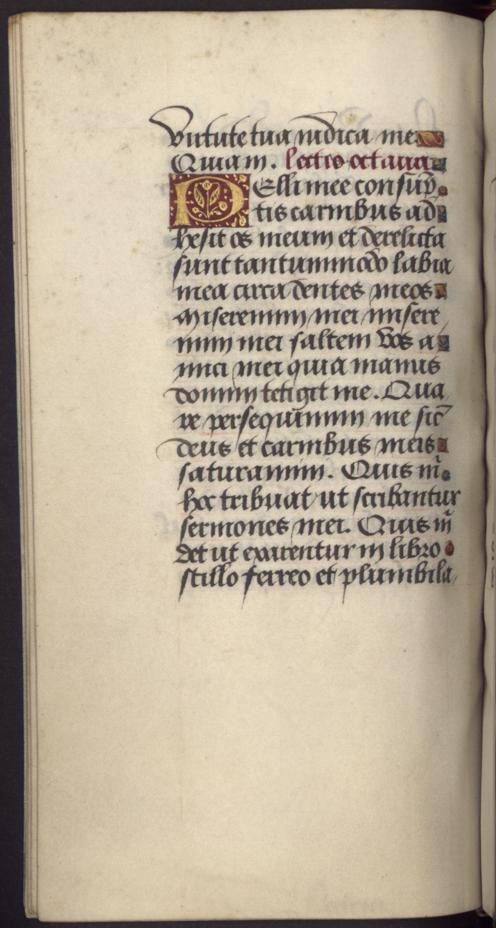 virtute tua iudica me
Quia in. lectio octaua
Pelli mee consup̄
tis carnibus ad
hesit os meum et derelicta
sunt tantummodo labia
mea circa dentes meos
Miseremini mei misere
mini mei saltem vos a
mici mei quia manus
domini tetigit me. Qua
re persequimini me sic̄
deus et carnibus meis
saturamini. Quis m̄
hec tribuat ut scribantur
sermones mei. Quis m̄
det ut exarentur in libro
stillo ferreo et plumbi la